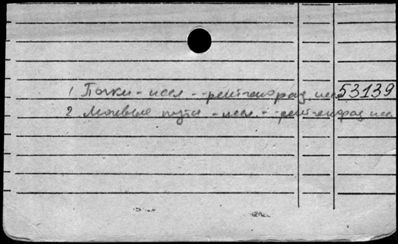 1 Почки - иссл. - рентгеногр. иссл. 53139
2 Мочевые пути - иссл. - рентгеногр. иссл.